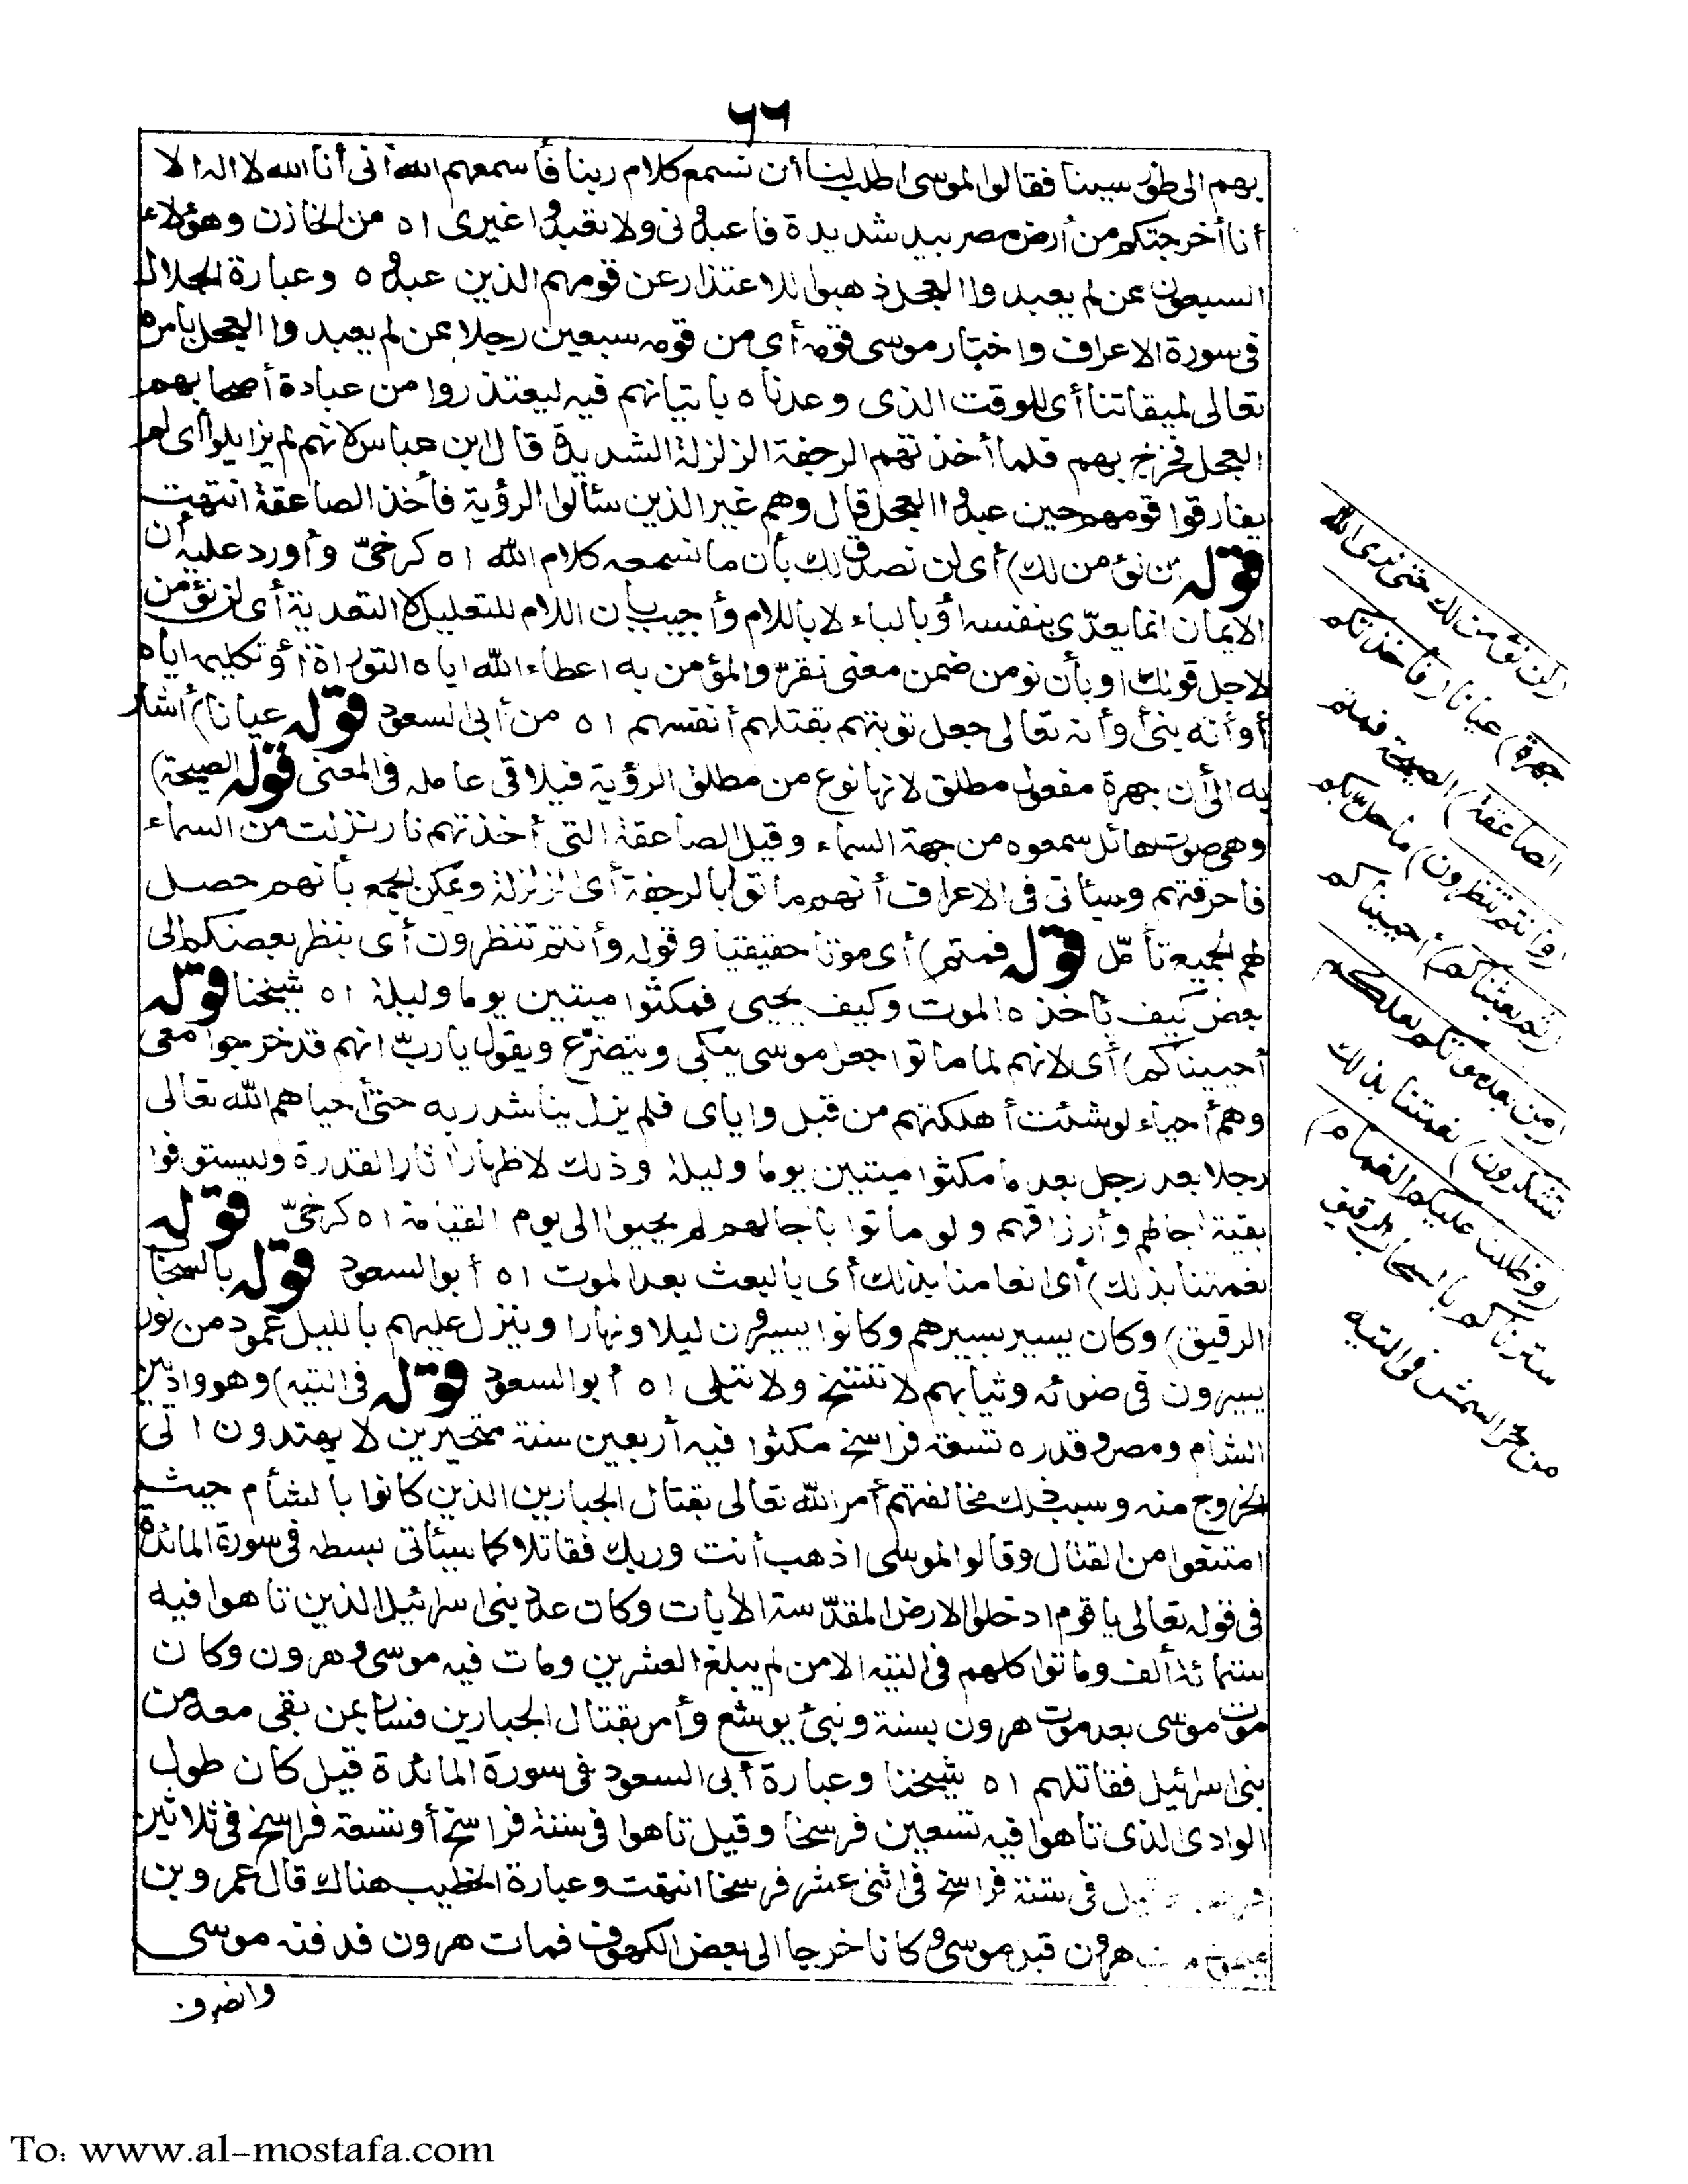 ٦٦
بهم الى طور سينا فقالوا لموسى اطلب لنا أن نسمع كلام ربنا فأسمعهم الله أنى أنا الله لا اله الا
أنا أخرجتكم من أرض مصر بيد شديدة فاعبدونى ولا تعبدوا غيرى اه من الخازن وهؤلاء
السبعون ممن لم يعبدوا العجل ذهبوا للاعتذار عن قومهم الذين عبدوه وعبارة الجلال
فى سورة الاعراف واختار موسى قومه أى من قومه سبعين رجلا ممن لم يعبدوا العجل بأمره
تعالى لميقاتنا أى للوقت الذى وعدناه باتيانهم فيه ليعتذروا من عبادة أصحابهم
العجل فخرج بهم فلما أخذتهم الرجفة الزلزلة الشديدة قال ابن عباس لانهم لم يزايلوا أى لم
يفارقوا قومهم حين عبدوا العجل قال وهم غير الذين سألوا الرؤية فأخذ الصاعقة انتهت
قوله لن نؤمن لك) أى لن نصدق لك بأن ما نسمعه كلام الله اه كرخىّ وأورد عليه أن
الايمان انما يعدّى بنفسه أو بالباء لا باللام وأجيب بأن اللام للتعليل لا للتعدية أى لن نؤمن
لاجل قولك أو بأن نومن ضمن معنى نقرّ والمؤمن به اعطاء الله اياه التوراة أو تكليمه اياه
أو أنه نبىّ وأنه تعالى جعل توبتهم بقتلهم أنفسهم اه من أبى السعود قوله عيانا) أشار
به الى أن جهرة مفعول مطلق لانها نوع من مطلق الرؤية فيلاقى عامله فى المعنى قوله الصيحة)
وهى صوت هائل سمعوه من جهة السماء وقيل الصاعقة التى أخذتهم نار نزلت من السماء
فاحرقتهم وسيأتى فى الاعراف أنهم ماتوا بالرجفة أى الزلزلة ويمكن الجمع بأنهم حصل
لهم الجميع تأمّل قوله فمتم) أى موتا حقيقيا وقوله وأنتم تنظرون أى ينظر بعضكم الى
بعض كيف يأخذه الموت وكيف يحيى فمكثوا ميتين يوما وليلة اه شيخنا قوله
أحييناكم) أى لانهم لما ماتوا جعل موسى يبكى ويتضرّع ويقول يا ربّ انهم قد خرجوا معى
وهم أحياء لو شئت أهلكتهم من قبل واياى فلم يزل يناشد ربه حتى أحياهم الله تعالى
رجلا بعد رجل بعد ما مكثوا ميتين يوما وليلة وذلك لاظهار آثار القدرة وليستوفوا
بقية آجالهم وأرزاقهم ولو ماتوا بآجالهم لم يحيوا الى يوم القيامة اه كرخىّ قوله
نعمتنا بذلك) أى انعامنا بذلك أى بالبعث بعد الموت اه أبو السعود قوله بالسحاب
الرقيق) وكان يسير بسيرهم وكانوا يسيرون ليلا ونهارا وينزل عليهم بالليل عمود من نور
يسيرون فى ضوئه وثيابهم لا تتسخ ولا تبلى اه أبو السعود قوله فى التيه) وهو واد بين
الشام ومصر وقدره تسعة فراسخ مكثوا فيه أربعين سنة متحيرين لا يهتدون الى
الخروج منه وسبب ذلك مخالفتهم أمر الله تعالى بقتال الجبارين الذين كانوا بالشأم حيث
امتنعوا من القتال وقالوا لموسى اذهب أنت وربك فقاتلا كما سيأتى بسطه فى سورة المائدة
فى قوله تعالى يا قوم ادخلوا الارض المقدّسة الآيات وكان عدد بنى اسرائيل الذين تاهوا فيه
ستمائة ألف وماتوا كلهم فى التيه الا من لم يبلغ العشرين ومات فيه موسى وهرون وكان
موت موسى بعد موت هرون بسنة ونبئ يوشع وأمر بقتال الجبارين فسار بمن بقى معه من
بنى اسرائيل فقاتلهم اه شيخنا وعبارة أبى السعود فى سورة المائدة قيل كان طول
الوادى الذى تاهوا فيه تسعين فرسخا وقيل تاهوا فى ستة فراسخ أو تسعة فراسخ فى ثلاثين
فى ستة فراسخ فى اثنى عشر فرسخا انتهت وعبارة الخطيب هناك قال عمرو بن
هرون قبل موسى وكانا خرجا الى بعض الكهوف فمات هرون فدفنه موسى
وانصرف
(لن نؤمن لك حتى نرى الله
جهرة) عيانا (فأخذتكم
الصاعقة) الصيحة فمتم
(وأنتم تنظرون) ما حلّ بكم
(ثم بعثناكم) أحييناكم
(من بعد موتكم لعلكم
تشكرون) نعمتنا بذلك
(وظللنا عليكم الغمام)
سترناكم بالسحاب الرقيق
من حرّ الشمس فى التيه
To: www.al-mostafa.com